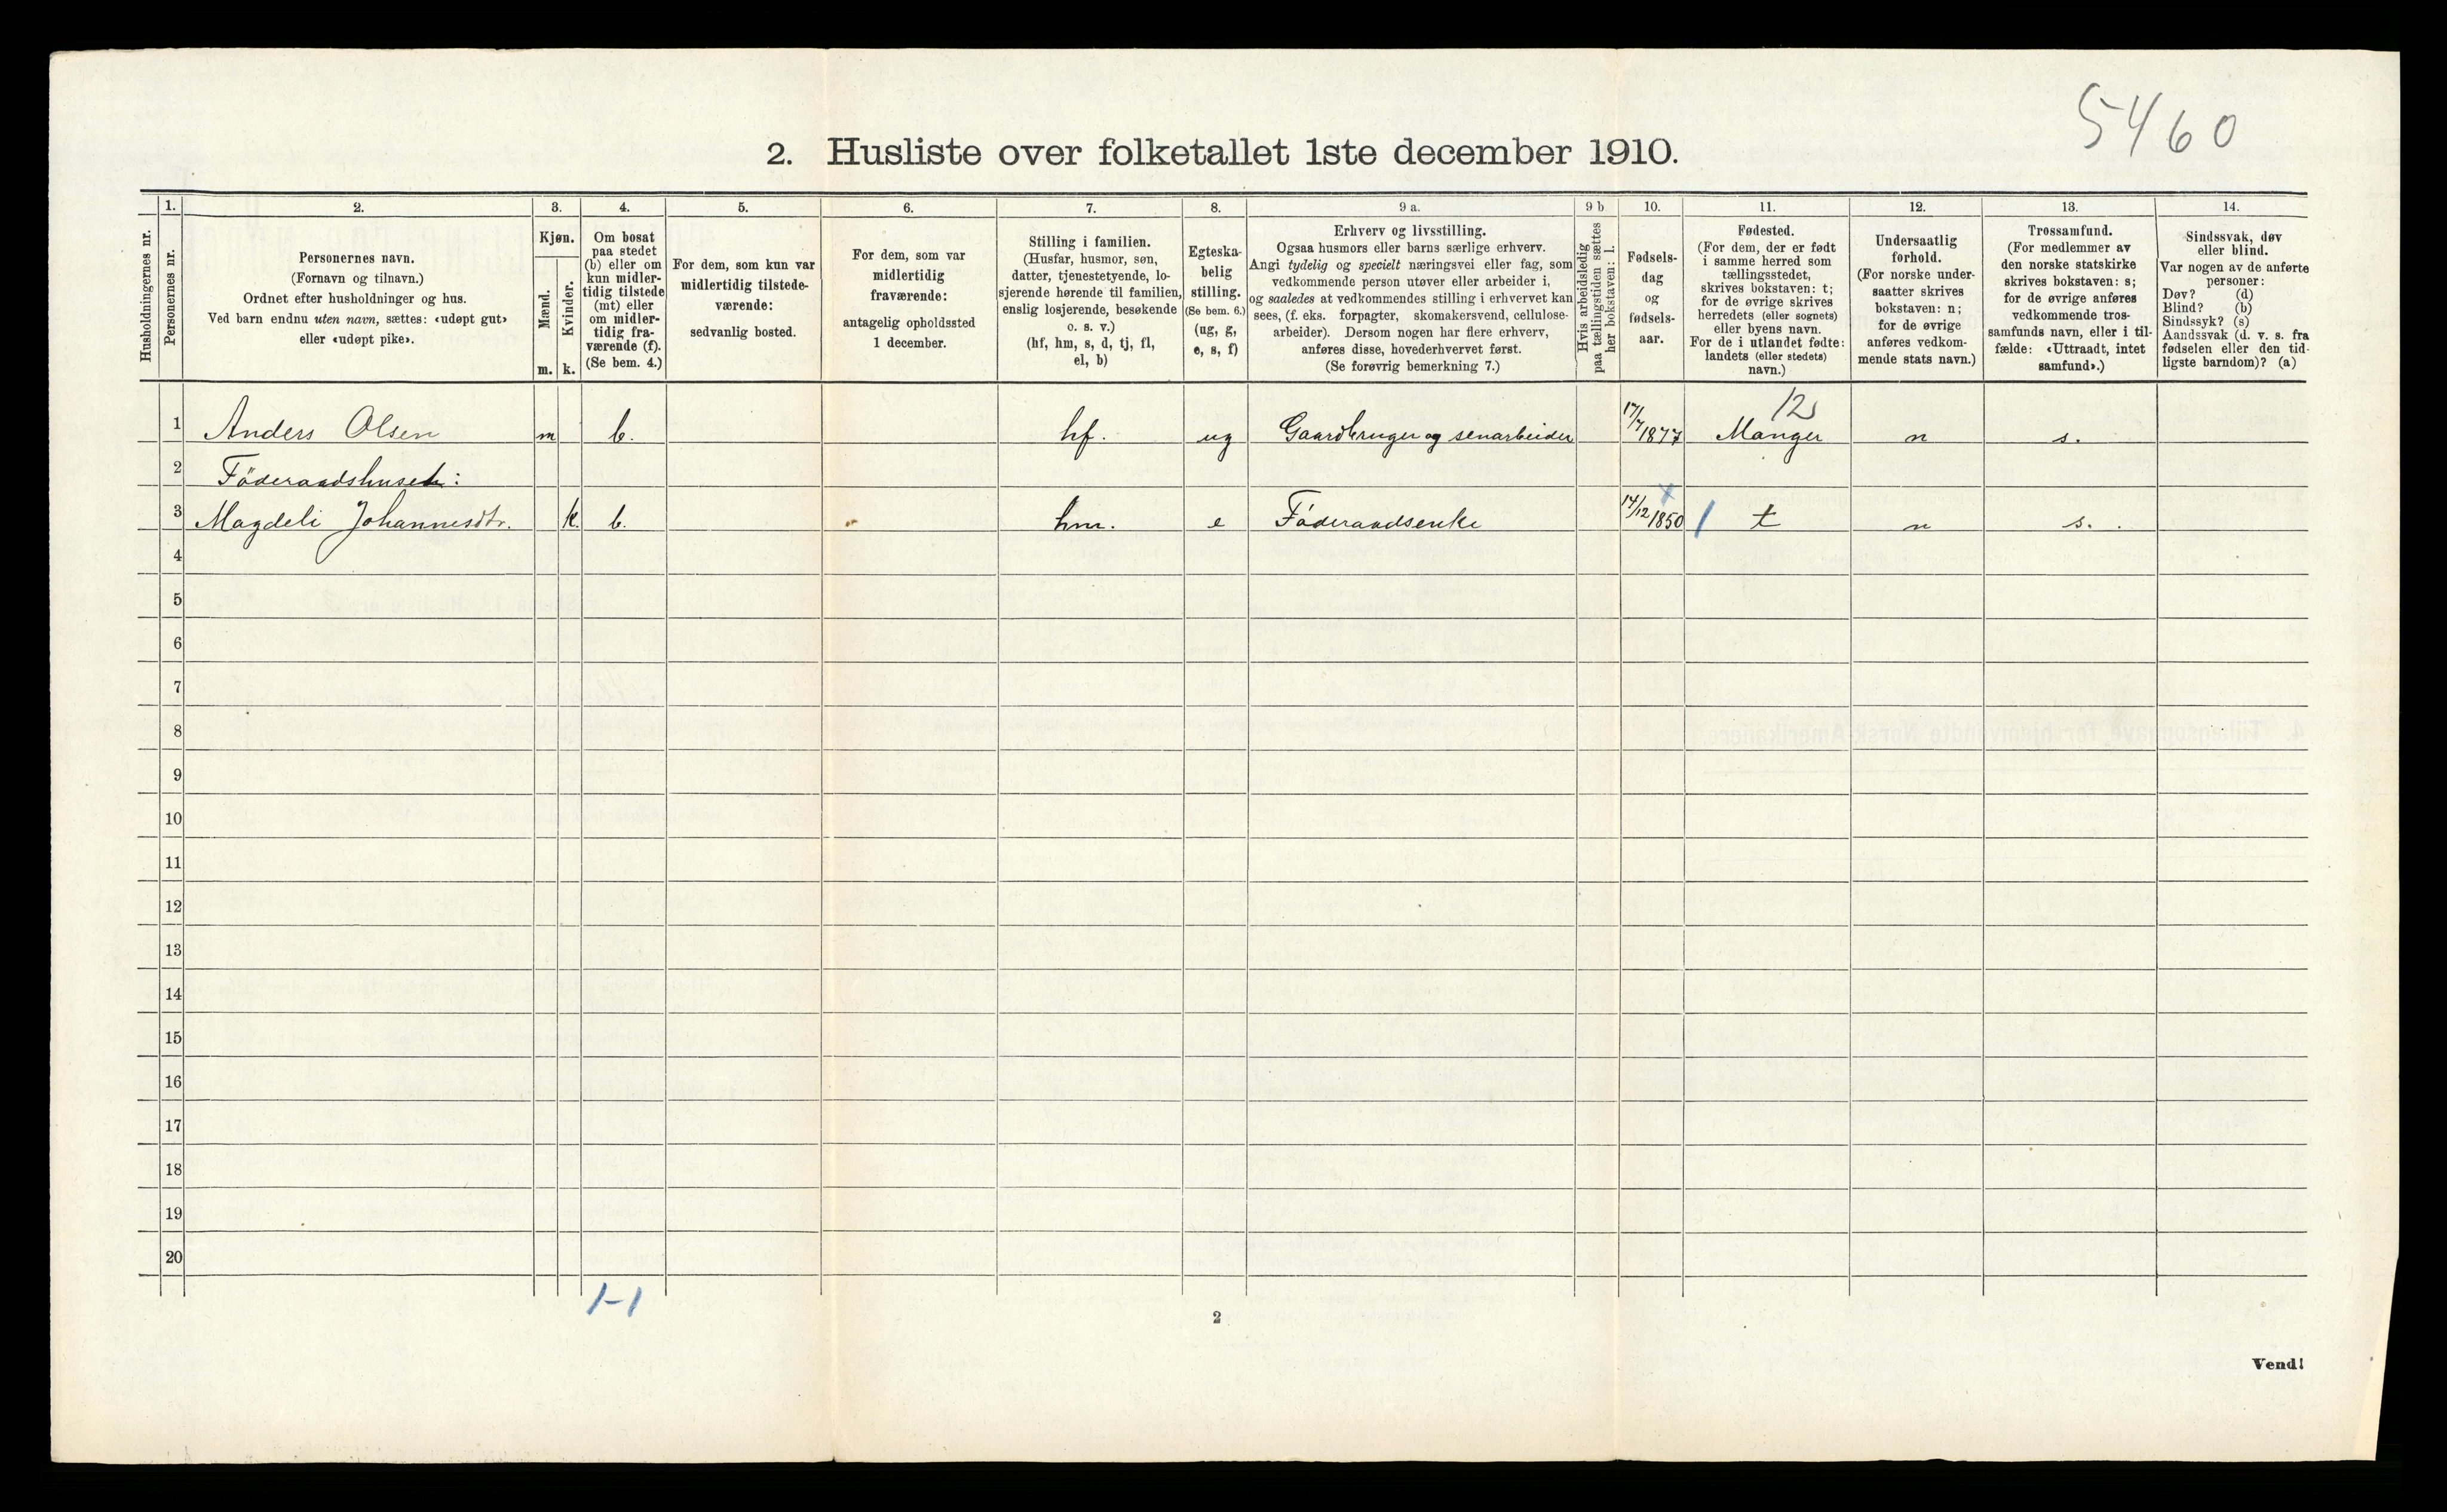 5460
2. Husliste over folketallet 1ste december 1910.
Husholdningernes nr.
1.
Personernes nr.
2.
Personernes navn.
(Fornavn og tilnavn.)
Ordnet efter husholdninger og hus.
Ved barn endnu uten navn, sættes: «udøpt gut»
eller «udøpt pike».
3.
Kjøn.
Mænd.
Kvinder.
m. k.
4.
Om bosat
paa stedet
(b) eller om
kun midler-
tidig tilstede
(mt) eller
om midler-
tidig fra-
værende (f).
(Se bem. 4.)
5.
For dem, som kun var
midlertidig tilstede-
værende:
sedvanlig bosted.
6.
For dem, som var
midlertidig
fraværende:
antagelig opholdssted
1 december.
7.
Stilling i familien.
(Husfar, husmor, søn,
datter, tjenestetyende, lo-
sjerende hørende til familien,
enslig losjerende, besøkende
o. s. v.)
(hf, hm, s, d, tj, fl,
el, b)
8.
Egteska-
belig
stilling.
(Se bem. 6.)
(ug, g,
e, s, f)
9 a.
Erhverv og livsstilling.
Ogsaa husmors eller barns særlige erhverv.
Angi tydelig og specielt næringsvei eller fag, som
vedkommende person utøver eller arbeider i,
og saaledes at vedkommendes stilling i erhvervet kan
sees, (f. eks. forpagter, skomakersvend, cellulose-
arbeider). Dersom nogen har flere erhverv,
anføres disse, hovederhvervet først.
(Se forøvrig bemerkning 7.)
9 b
Hvis arbeidsledig
paa tællingstiden sættes
her bokstaven: l.
10.
Fødsels-
dag
og
fødsels-
aar.
11.
Fødested.
(For dem, der er født
i samme herred som
tællingsstedet,
skrives bokstaven: t;
for de øvrige skrives
herredets (eller sognets)
eller byens navn.
For de i utlandet fødte:
landets (eller stedets)
navn.)
12.
Undersaatlig
forhold.
(For norske under-
saatter skrives
bokstaven: n;
for de øvrige
anføres vedkom-
mende stats navn.)
13.
Trossamfund.
(For medlemmer av
den norske statskirke
skrives bokstaven: s;
for de øvrige anføres
vedkommende tros-
samfunds navn, eller i til-
fælde: «Uttraadt, intet
samfund».)
14.
Sindssvak, døv
eller blind.
Var nogen av de anførte
personer:
Døv? (d)
Blind? (b)
Sindssyk? (s)
Aandssvak (d. v. s. fra
fødselen eller den tid-
ligste barndom)? (a)
12
1 Anders Olsen m b. hf. ug Gaardbruger og senarbeider 17/7 1877 Manger n s.
2 Föderaadshuset:
3 Magdeli Johannesdtr. k. b. hm. e Föderaadsenke 14/12 1850 t n s.
4
5
6
7
8
9
10
11
12
13
14
15
16
17
18
19
20
1-1
2
Vend!